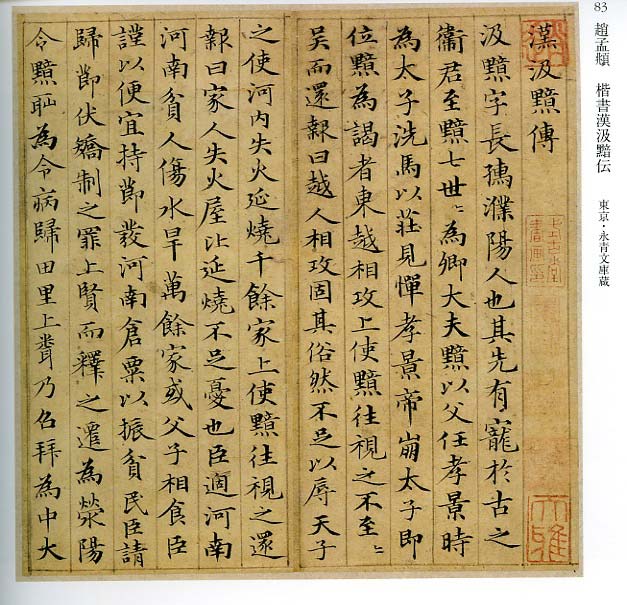 83
趙孟頫 楷書漢汲黯伝 東京・永青文庫蔵
漢汲黯傳
汲黯字長孺濮陽人也其先有寵於古之
衛君至黯七世〻為卿大夫黯以父任孝景時
為太子洗馬以莊見憚孝景帝崩太子即
位黯為謁者東越相攻上使黯往視之不至〻
吴而還報曰越人相攻固其俗然不足以辱天子
之使河内失火延燒千餘家上使黯往視之還
報曰家人失火屋比延燒不足憂也臣適河南
河南貧人傷水旱萬餘家或父子相食臣
謹以便宜持節發河南倉粟以振貧民臣請
歸節伏矯制之罪上賢而釋之遷為滎陽
令黯恥為令病歸田里上聞乃召拜為中大